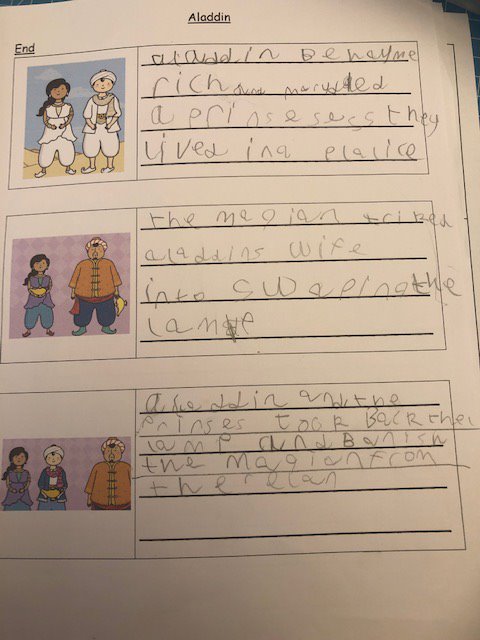 Aladdin
End
aladdin Behayme
rich and maryded
a prinsesess they
lived in a
the magian triked
aladdins wife
into swaping the
lampe
aladdin and the
Prinses took Back the
lamp and Banish
the magian from
the